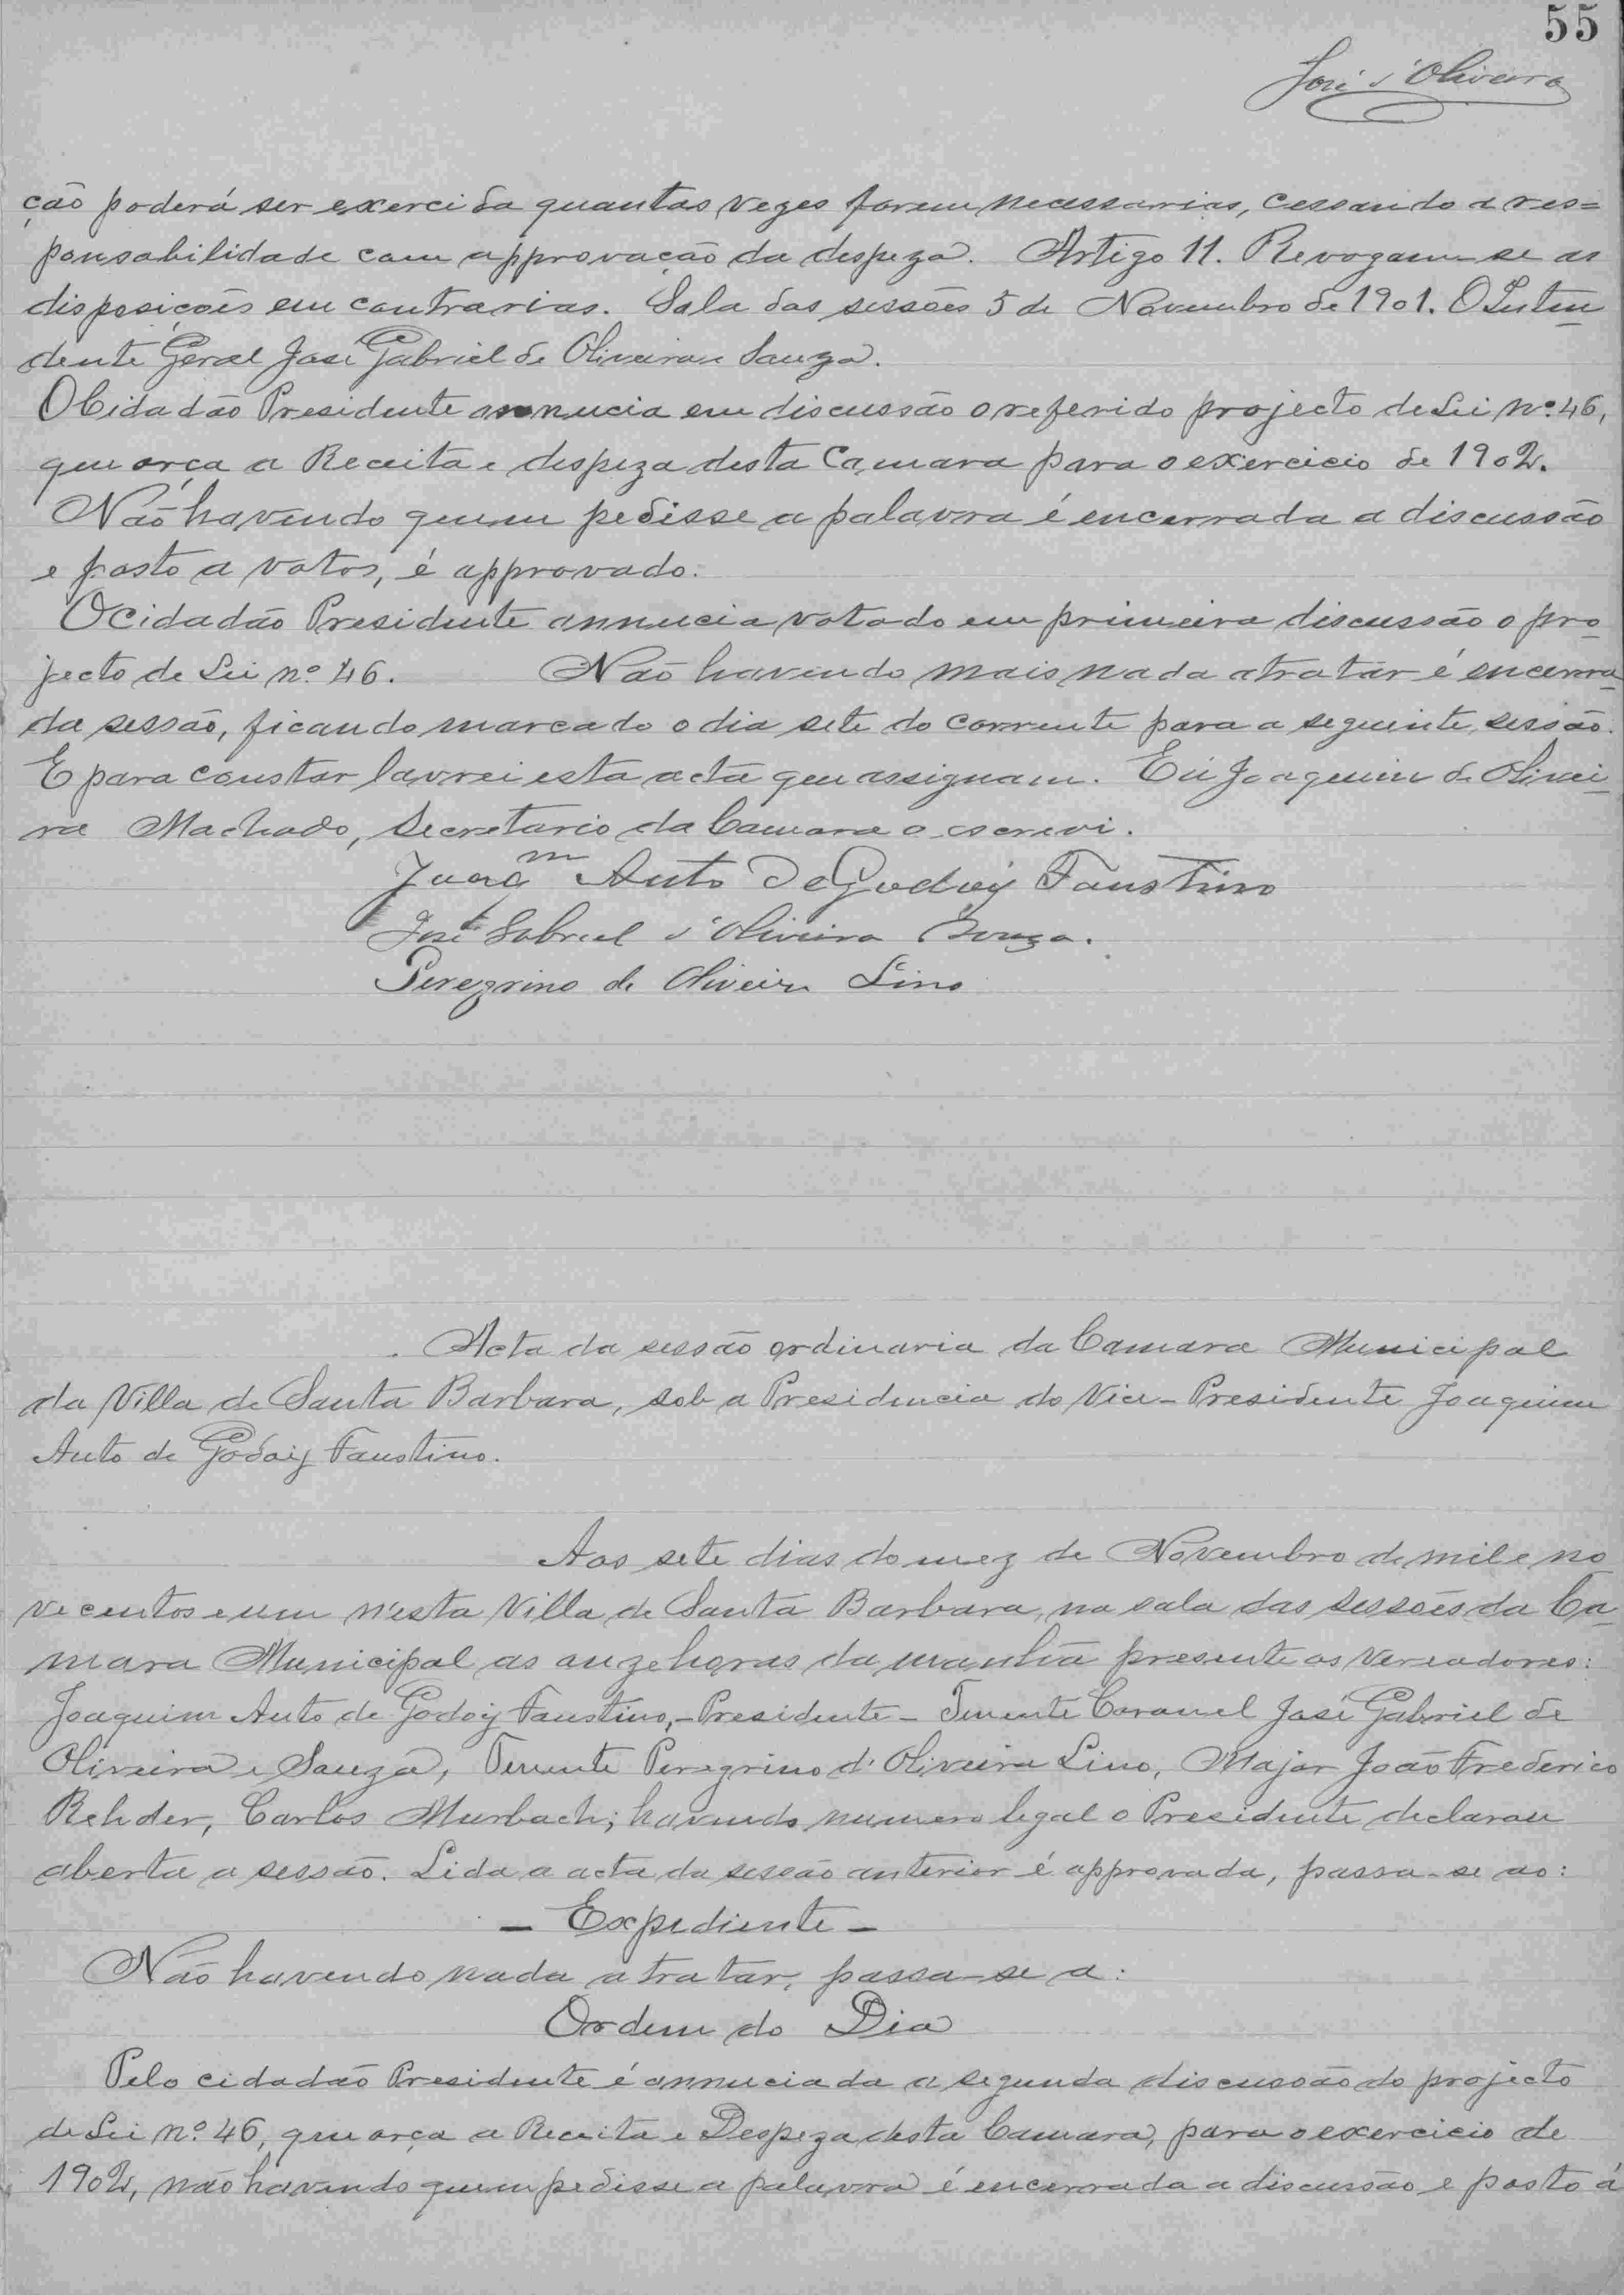 55
José d'Oliveira
ção poderá ser exercida quantas vezes forem necessarias, cessando a res=
ponsabilidade com approvação da despeza. Artigo 11. Revogam-se as
disposições em contrarias. Sala das sessões 5 de Novembro de 1901. O Inten
dente Geral José Gabriel de Oliveira e Souza.
O Cidadão Presidente annucia em discussão o referido projecto de Lei nº 46,
que orça a Receita e despeza desta Camara para o exercicio de 1902.
Não havendo quem pedisse a palavra é encerrada a discussão
e posto a votos, é approvado.
O Cidadão Presidente annucia votado em primeira discussão o pro
jecto de Lei nº 46. Não havendo mais nada a tratar é encerra
da sessão, ficando marcado o dia sete do corrente para a seguinte sessão.
E para constar lavrei esta acta que assignam. Eu Joaquim de Olivei
ra Machado, Secretario da Camara o escrevi.
Joaqm Auto de Godoy Faustino
José Gabriel d'Oliveira Souza.
Peregrino de Oliveira Lino
Acta da sessão ordinaria da Camara Municipal
da Villa de Santa Barbara, sob a Presidencia do Vice-Presidente Joaquim
Auto de Godoy Faustino.
Aos sete dias do mez de Novembro de mil e no
vecentos e um n'esta Villa de Santa Barbara, na sala das sessões da Ca
mara Municipal as onze horas da manhã presente os Vereadores:
Joaquim Auto de Godoy Faustino,-Presidente- Tenente Coronel José Gabriel de
Oliveira e Souza, Tenente Peregrino d'Oliveira Lino, Major João Frederico
Rehder, Carlos Murbach; havendo numero legal o Presidente declarou
aberta a sessão. Lida a acta da sessão anterior é approvada, passa-se ao:
- Expediente -
Não havendo nada a tratar, passa-se a:
Ordem do Dia
Pelo cidadão Presidente é annuciada a segunda discussão do projecto
de Lei nº 46, que orça a Receita e Despeza desta Camara, para o exercicio de
1902, não havendo quem pedisse a palavra é encerrada a discussão e posto á